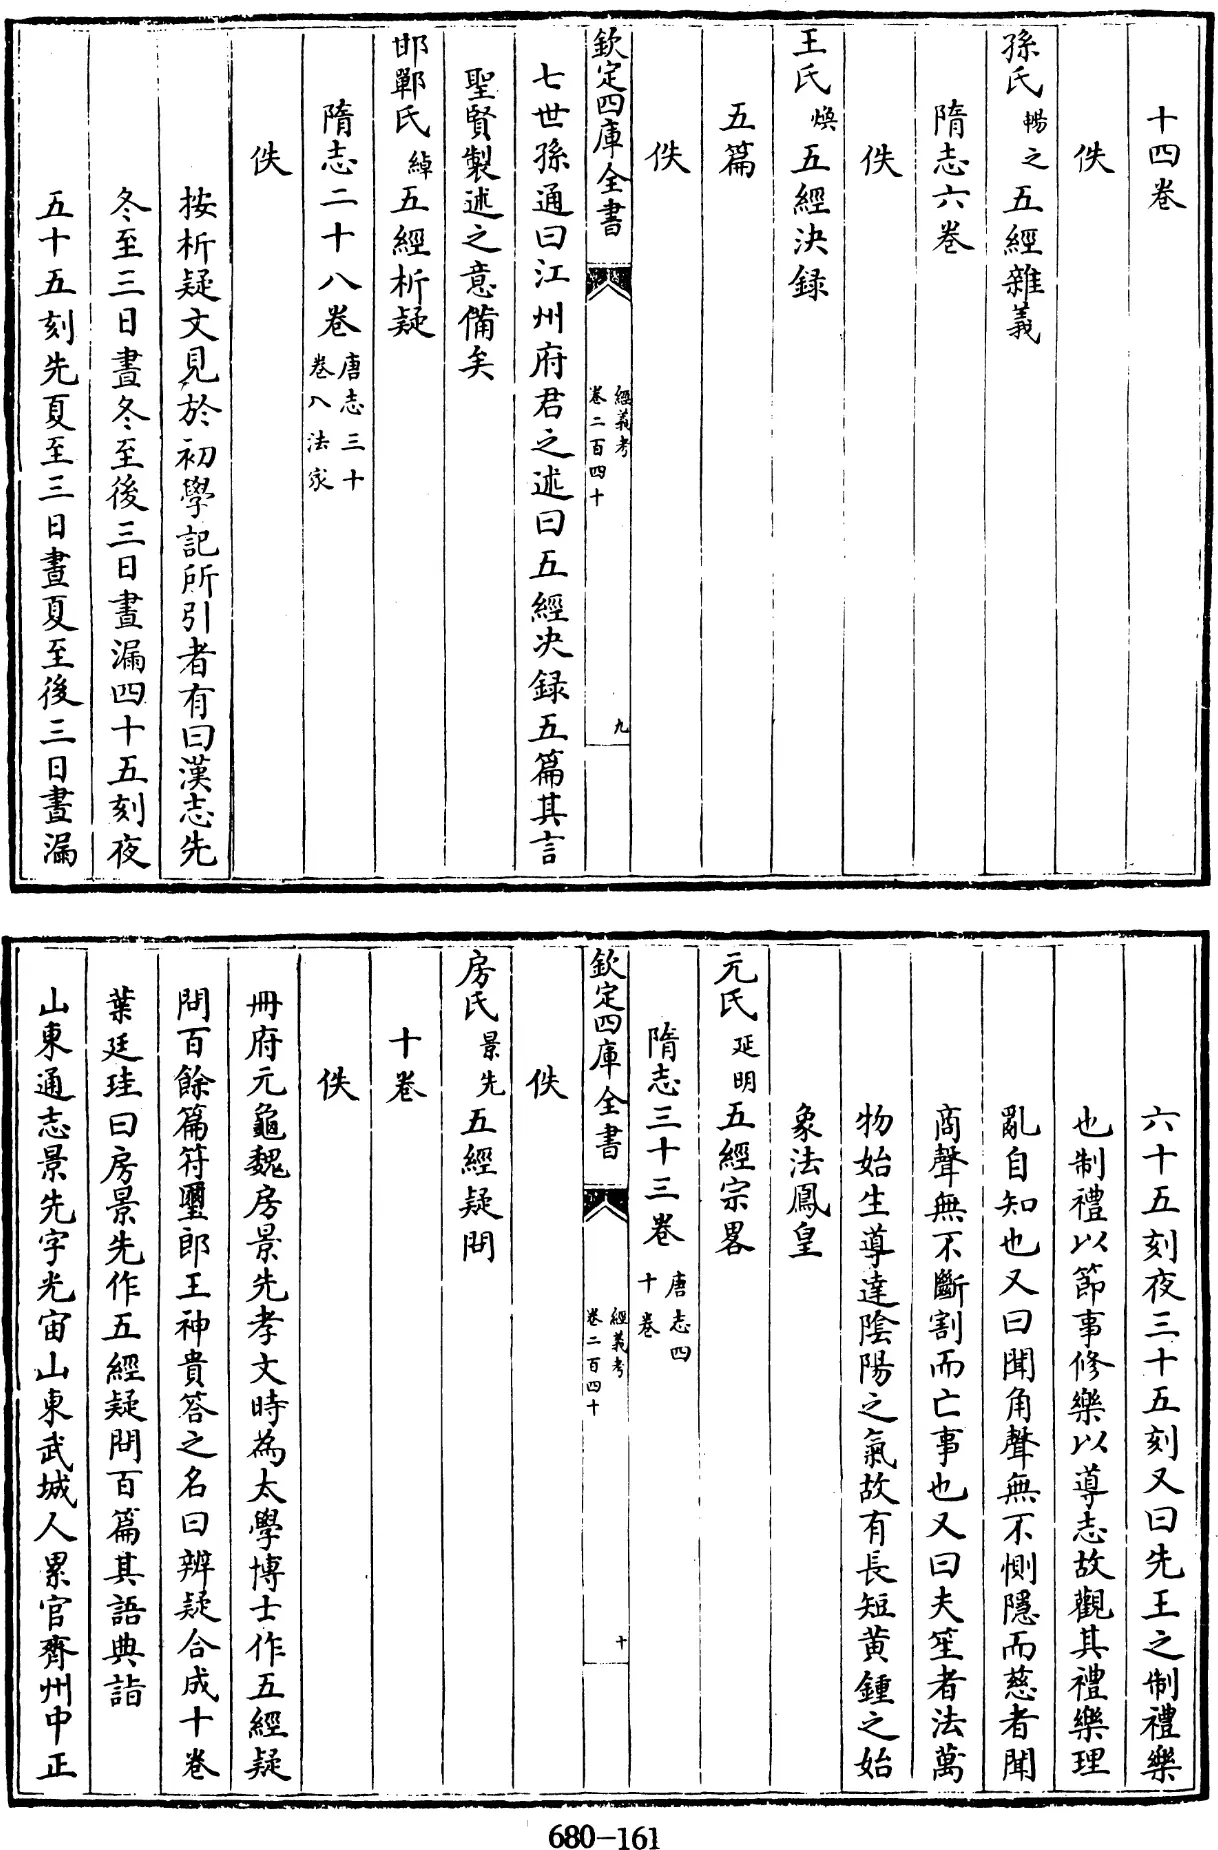 十四卷
佚
孫氏暢之五經雜義
隋志六卷
佚
王氏煥五經決録
五篇
佚
欽定四庫全書
經義考
卷二百四十
九
七世孫通曰江州府君之述曰五經决録五篇其言
聖賢製述之意備矣
邯鄲氏綽五經析疑
隋志二十八卷唐志三十
卷入法家
佚
按析疑文見於初學記所引者有曰漢志先
冬至三日晝冬至後三日晝漏四十五刻夜
五十五刻先夏至三日晝夏至後三日晝漏
六十五刻夜三十五刻又曰先王之制禮樂
也制禮以節事修樂以導志故觀其禮樂理
亂自知也又曰聞角聲無不惻隱而慈者聞
商聲無不斷割而亡事也又曰夫笙者法萬
物始生導達陰陽之氣故有長短黄鍾之始
象法鳳皇
元氏延明五經宗畧
隋志三十三卷唐志四
十卷
欽定四庫全書
經義考
卷二百四十
十
佚
房氏景先五經疑問
十卷
佚
冊府元龜魏房景先孝文時為太學博士作五經疑
問百餘篇符璽郎王神貴答之名曰辨疑合成十卷
葉廷珪曰房景先作五經疑問百篇其語典詣
山東通志景先字光宙山東武城人累官齊州中正
680-161